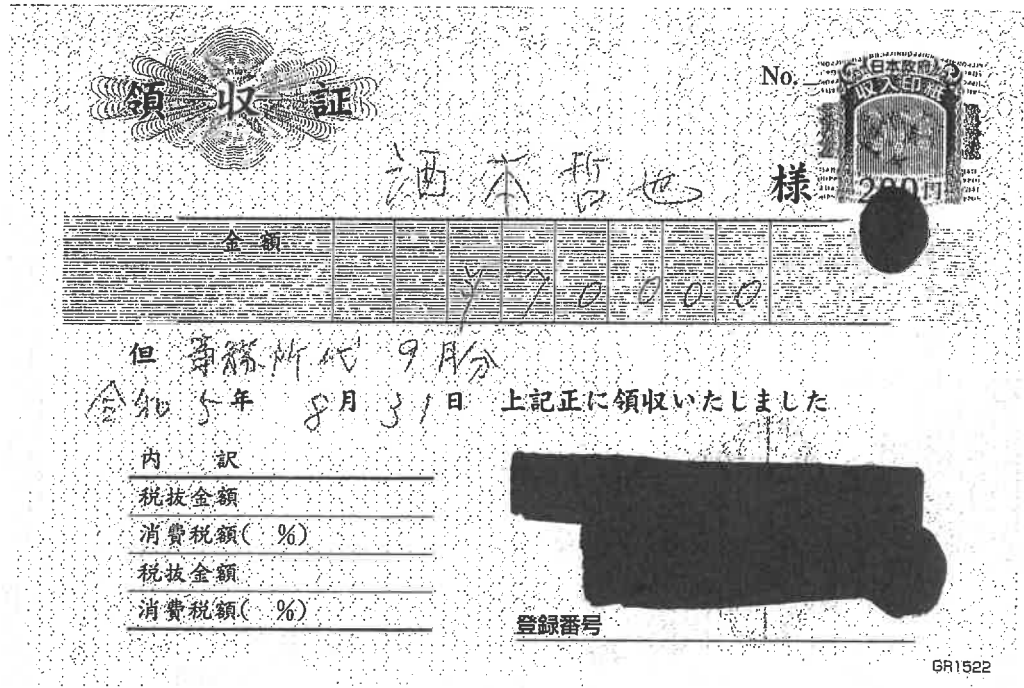 領収証
No.
日本政府
収入印紙
200円
酒本哲也 様
金額
¥70000
但 事務所代 9月分
令和5年 8月31日 上記正に領収いたしました
内 訳
税抜金額
消費税額( %)
税抜金額
消費税額( %)
登録番号
GR1522